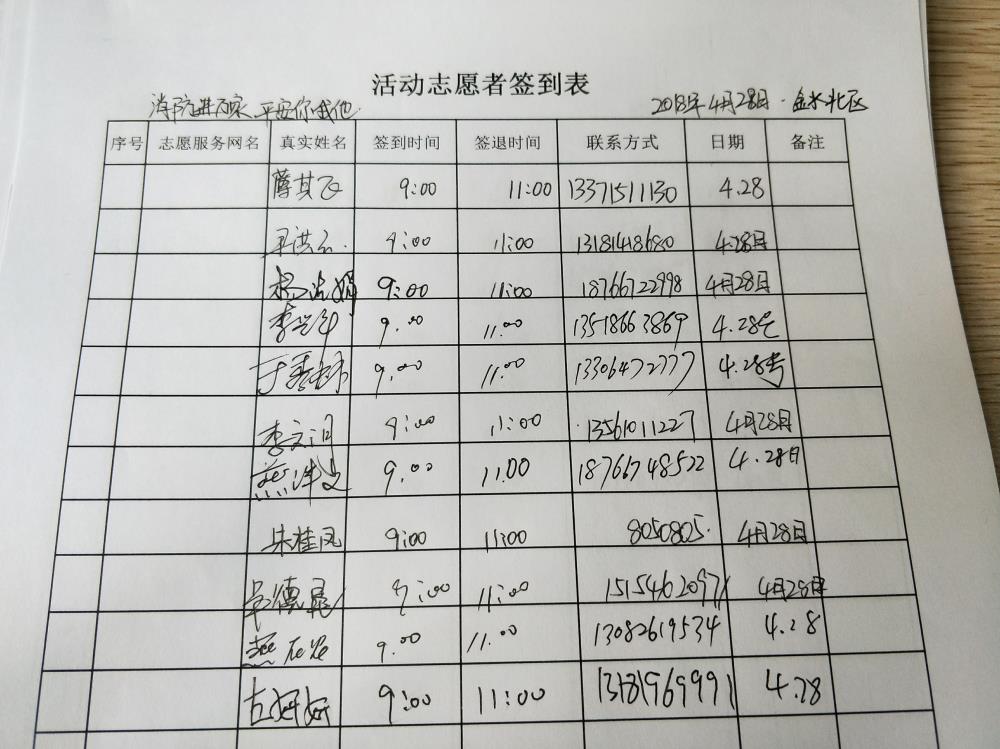 活动志愿者签到表
消防进万家 平安你我他 2018年4月28日·金水北区
序号 志愿服务网名 真实姓名 签到时间 签退时间 联系方式 日期 备注
薛其飞 9:00 11:00 13371511130 4.28
9:00 11:00 13181418680 4.28日
9:00 11:00 18766722998 4月28日
9.00 11.00 13518663869 4.28号
9.00 11.00 13306472777 4.28号
李文 9:00 11:00 13561011227 4月28日
9.00 11.00 18766748522 4.28日
朱桂凤 9:00 11:00 8050805. 4月28日
9:00 11:00 15154620971 4月28日
9.00 11.00 13082619534 4.28
左妍妍 9:00 11:00 13181969991 4.28